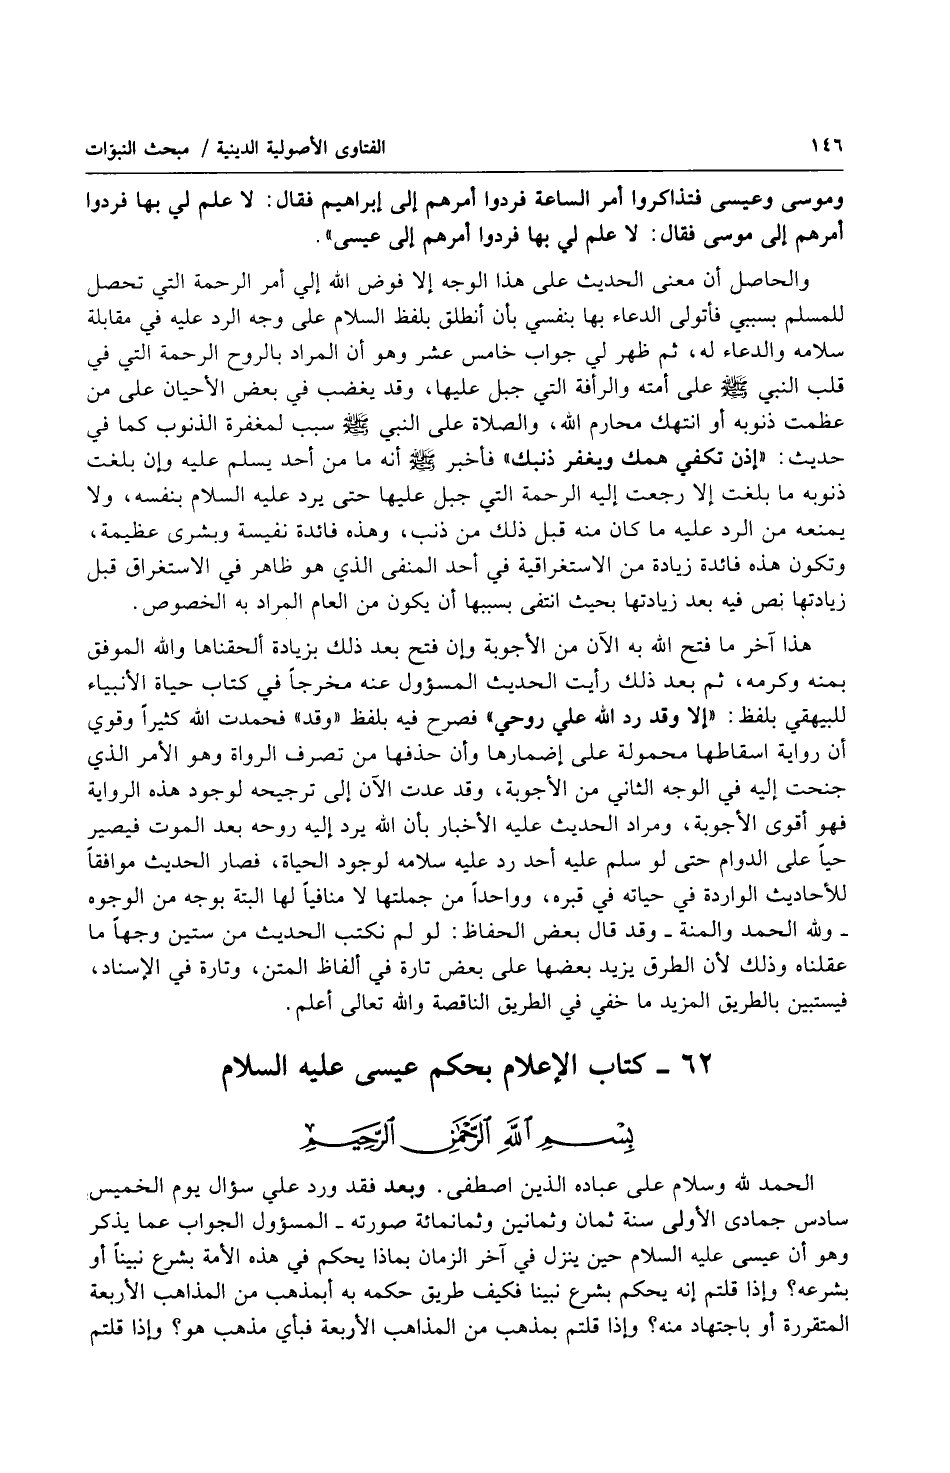 ١٤٦ الفتاوى الأصولية الدينية / مبحث النبوّات
وموسى وعيسى فتذاكروا أمر الساعة فردوا أمرهم إلى إبراهيم فقال: لا علم لي بها فردوا
أمرهم إلى موسى فقال: لا علم لي بها فردوا أمرهم إلى عيسى».
والحاصل أن معنى الحديث على هذا الوجه إلا فوض الله إلي أمر الرحمة التي تحصل
للمسلم بسببي فأتولى الدعاء بها بنفسي بأن أنطلق بلفظ السلام على وجه الرد عليه في مقابلة
سلامه والدعاء له، ثم ظهر لي جواب خامس عشر وهو أن المراد بالروح الرحمة التي في
قلب النبي ﷺ على أمته والرأفة التي جبل عليها، وقد يغضب في بعض الأحيان على من
عظمت ذنوبه أو انتهك محارم الله، والصلاة على النبي ﷺ سبب لمغفرة الذنوب كما في
حديث: «إذن تكفي همك ويغفر ذنبك» فأخبر ﷺ أنه ما من أحد يسلم عليه وإن بلغت
ذنوبه ما بلغت إلا رجعت إليه الرحمة التي جبل عليها حتى يرد عليه السلام بنفسه، ولا
يمنعه من الرد عليه ما كان منه قبل ذلك من ذنب، وهذه فائدة نفيسة وبشرى عظيمة،
وتكون هذه فائدة زيادة من الاستغراقية في أحد المنفى الذي هو ظاهر في الاستغراق قبل
زيادتها نص فيه بعد زيادتها بحيث انتفى بسببها أن يكون من العام المراد به الخصوص.
هذا آخر ما فتح الله به الآن من الأجوبة وإن فتح بعد ذلك بزيادة ألحقناها والله الموفق
بمنه وكرمه، ثم بعد ذلك رأيت الحديث المسؤول عنه مخرجاً في كتاب حياة الأنبياء
للبيهقي بلفظ: «إلا وقد رد الله علي روحي» فصرح فيه بلفظ «وقد» فحمدت الله كثيراً وقوي
أن رواية اسقاطها محمولة على إضمارها وأن حذفها من تصرف الرواة وهو الأمر الذي
جنحت إليه في الوجه الثاني من الأجوبة، وقد عدت الآن إلى ترجيحه لوجود هذه الرواية
فهو أقوى الأجوبة، ومراد الحديث عليه الأخبار بأن الله يرد إليه روحه بعد الموت فيصير
حياً على الدوام حتى لو سلم عليه أحد رد عليه سلامه لوجود الحياة، فصار الحديث موافقاً
للأحاديث الواردة في حياته في قبره، وواحداً من جملتها لا منافياً لها البتة بوجه من الوجوه
ـ ولله الحمد والمنة ـ وقد قال بعض الحفاظ: لو لم نكتب الحديث من ستين وجهاً ما
عقلناه وذلك لأن الطرق يزيد بعضها على بعض تارة في ألفاظ المتن، وتارة في الإسناد،
فيستبين بالطريق المزيد ما خفي في الطريق الناقصة والله تعالى أعلم.
٦٢ ـ كتاب الإعلام بحكم عيسى عليه السلام
بِسْمِ ٱللَّهِ ٱلرَّحْمَٰنِ ٱلرَّحِيمِ
الحمد لله وسلام على عباده الذين اصطفى. وبعد فقد ورد علي سؤال يوم الخميس
سادس جمادى الأولى سنة ثمان وثمانين وثمانمائة صورته ـ المسؤول الجواب عما يذكر
وهو أن عيسى عليه السلام حين ينزل في آخر الزمان بماذا يحكم في هذه الأمة بشرع نبيناً أو
بشرعه؟ وإذا قلتم إنه يحكم بشرع نبينا فكيف طريق حكمه به أبمذهب من المذاهب الأربعة
المتقررة أو باجتهاد منه؟ وإذا قلتم بمذهب من المذاهب الأربعة فبأي مذهب هو؟ وإذا قلتم